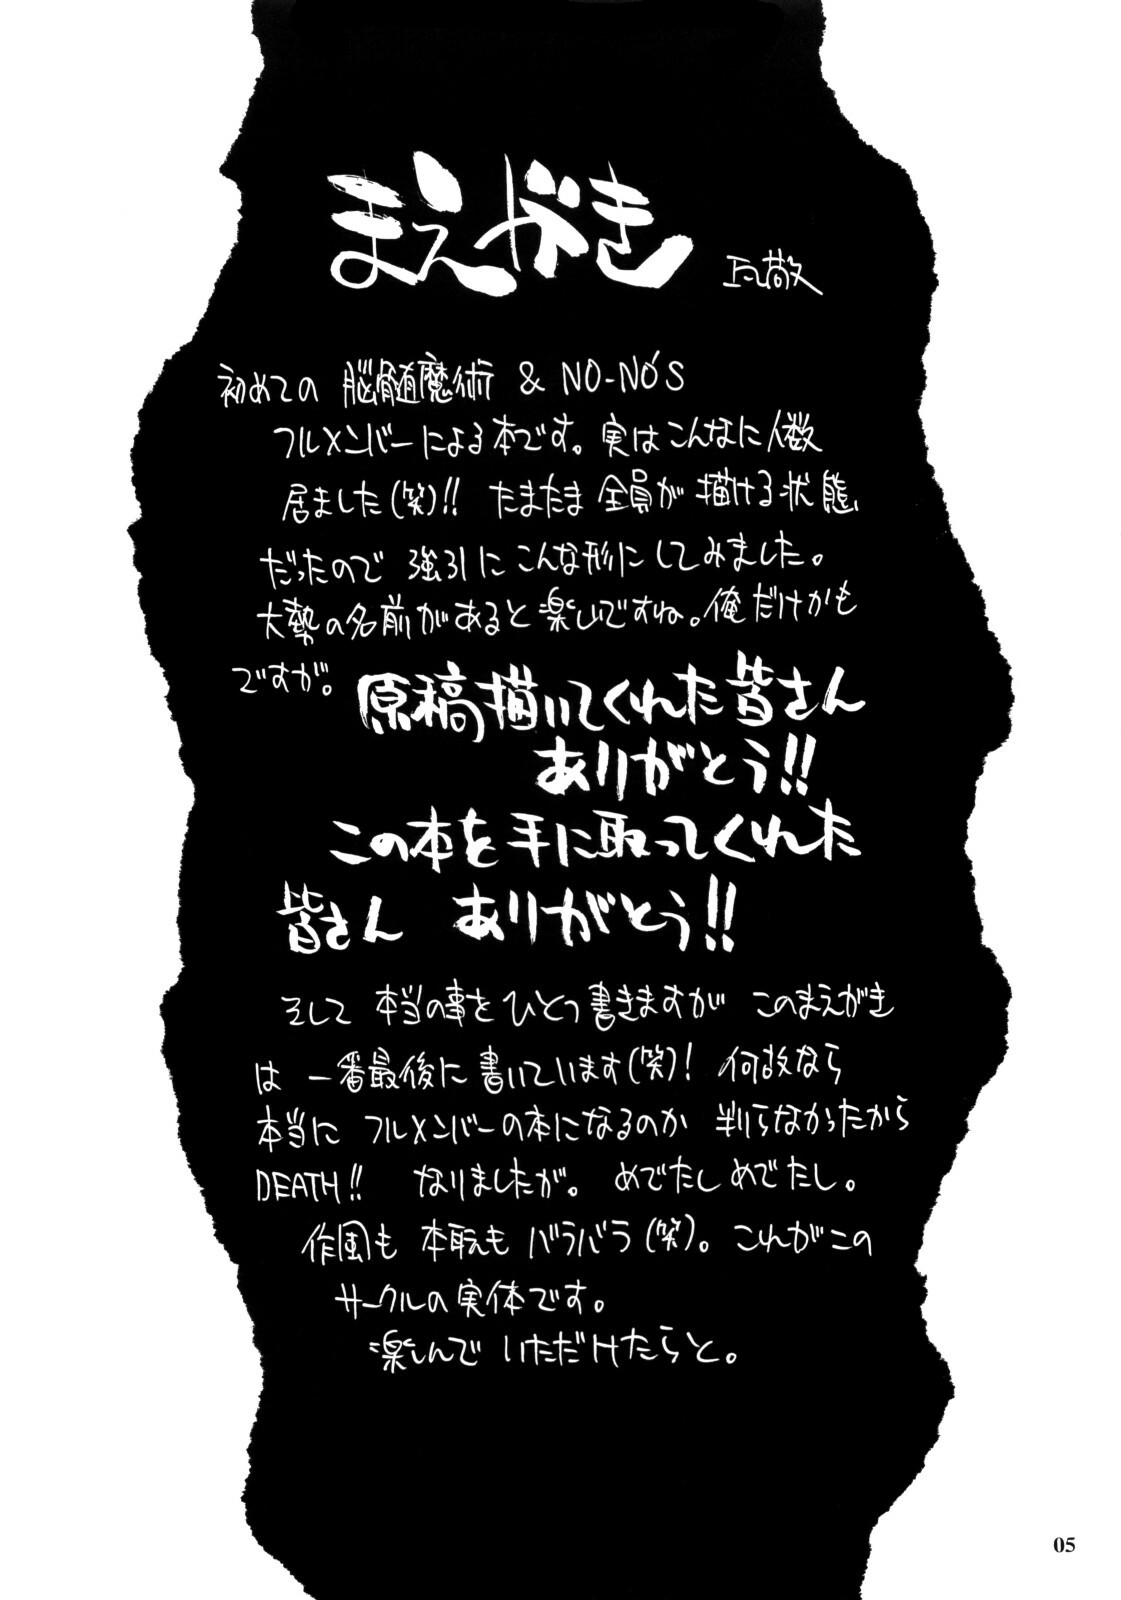 まえがき 瓦敬
初めての 脳髄魔術 & NO-NO'S
フルメンバーによる本です。実はこんなに人数
居ました(笑)!! たまたま全員が描ける状態
だったので 強引にこんな形にしてみました。
大勢の名前があると楽しいですね。俺だけかも
ですが。
原稿描いてくれた皆さん
ありがとう!!
この本を手に取ってくれた
皆さん ありがとう!!
そして 本当の事をひとつ書きますが このまえがき
は 一番最後に書いています(笑)! 何故なら
本当に フルメンバーの本になるのか 判らなかったから
DEATH!! なりましたが。 めでたしめでたし。
作風も 本職も バラバラ(笑)。これがこの
サークルの実体です。
楽しんで いただけたらと。
05